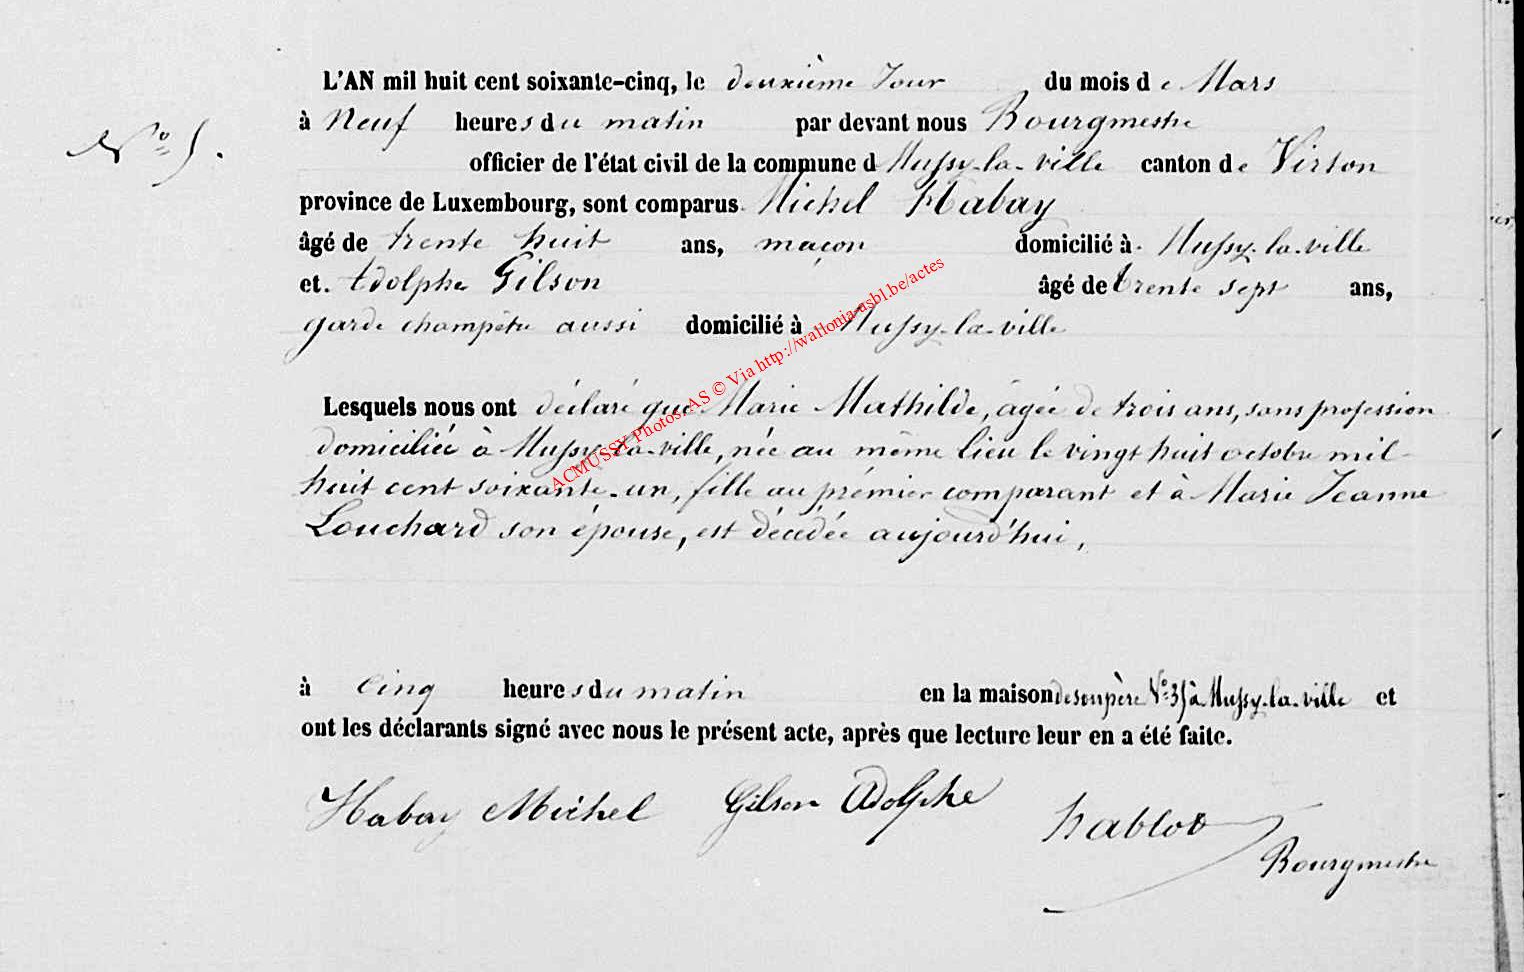 L'AN mil huit cent soixante-cinq, le deuxième Jour du mois de Mars
à Neuf heures du matin par devant nous Bourgmestre
N° 5. officier de l'état civil de la commune d Mussy-la-ville canton de Virton
province de Luxembourg, sont comparus Michel Habay
âgé de trente huit ans, maçon domicilié à Mussy-la-ville
et Adolphe Gilson âgé de trente sept ans,
garde champêtre aussi domicilié à Mussy-la-ville
Lesquels nous ont déclaré que Marie Mathilde, âgée de trois ans, sans profession
domiciliée à Mussy-la-ville, née au même lieu le vingt huit octobre mil
huit cent soixante-un, fille au prémier comparant et à Marie Jeanne
Louchard son épouse, est décédée aujourd'hui,
à cinq heures du matin en la maison de son père N° 35 à Mussy-la-ville et
ont les déclarants signé avec nous le présent acte, après que lecture leur en a été faite.
Habay Michel Gilson Adolphe hablot
Bourgmestre
ACMUSSY Photos: AS © Via http://wallonia-asbl.be/actes